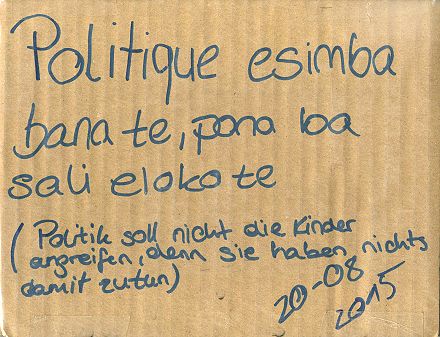 Politique esimba
bana te, pona ba
sali eloko te
(Politik soll nicht die Kinder
angreifen, denn sie haben nichts
damit zutun)
20-08
2015